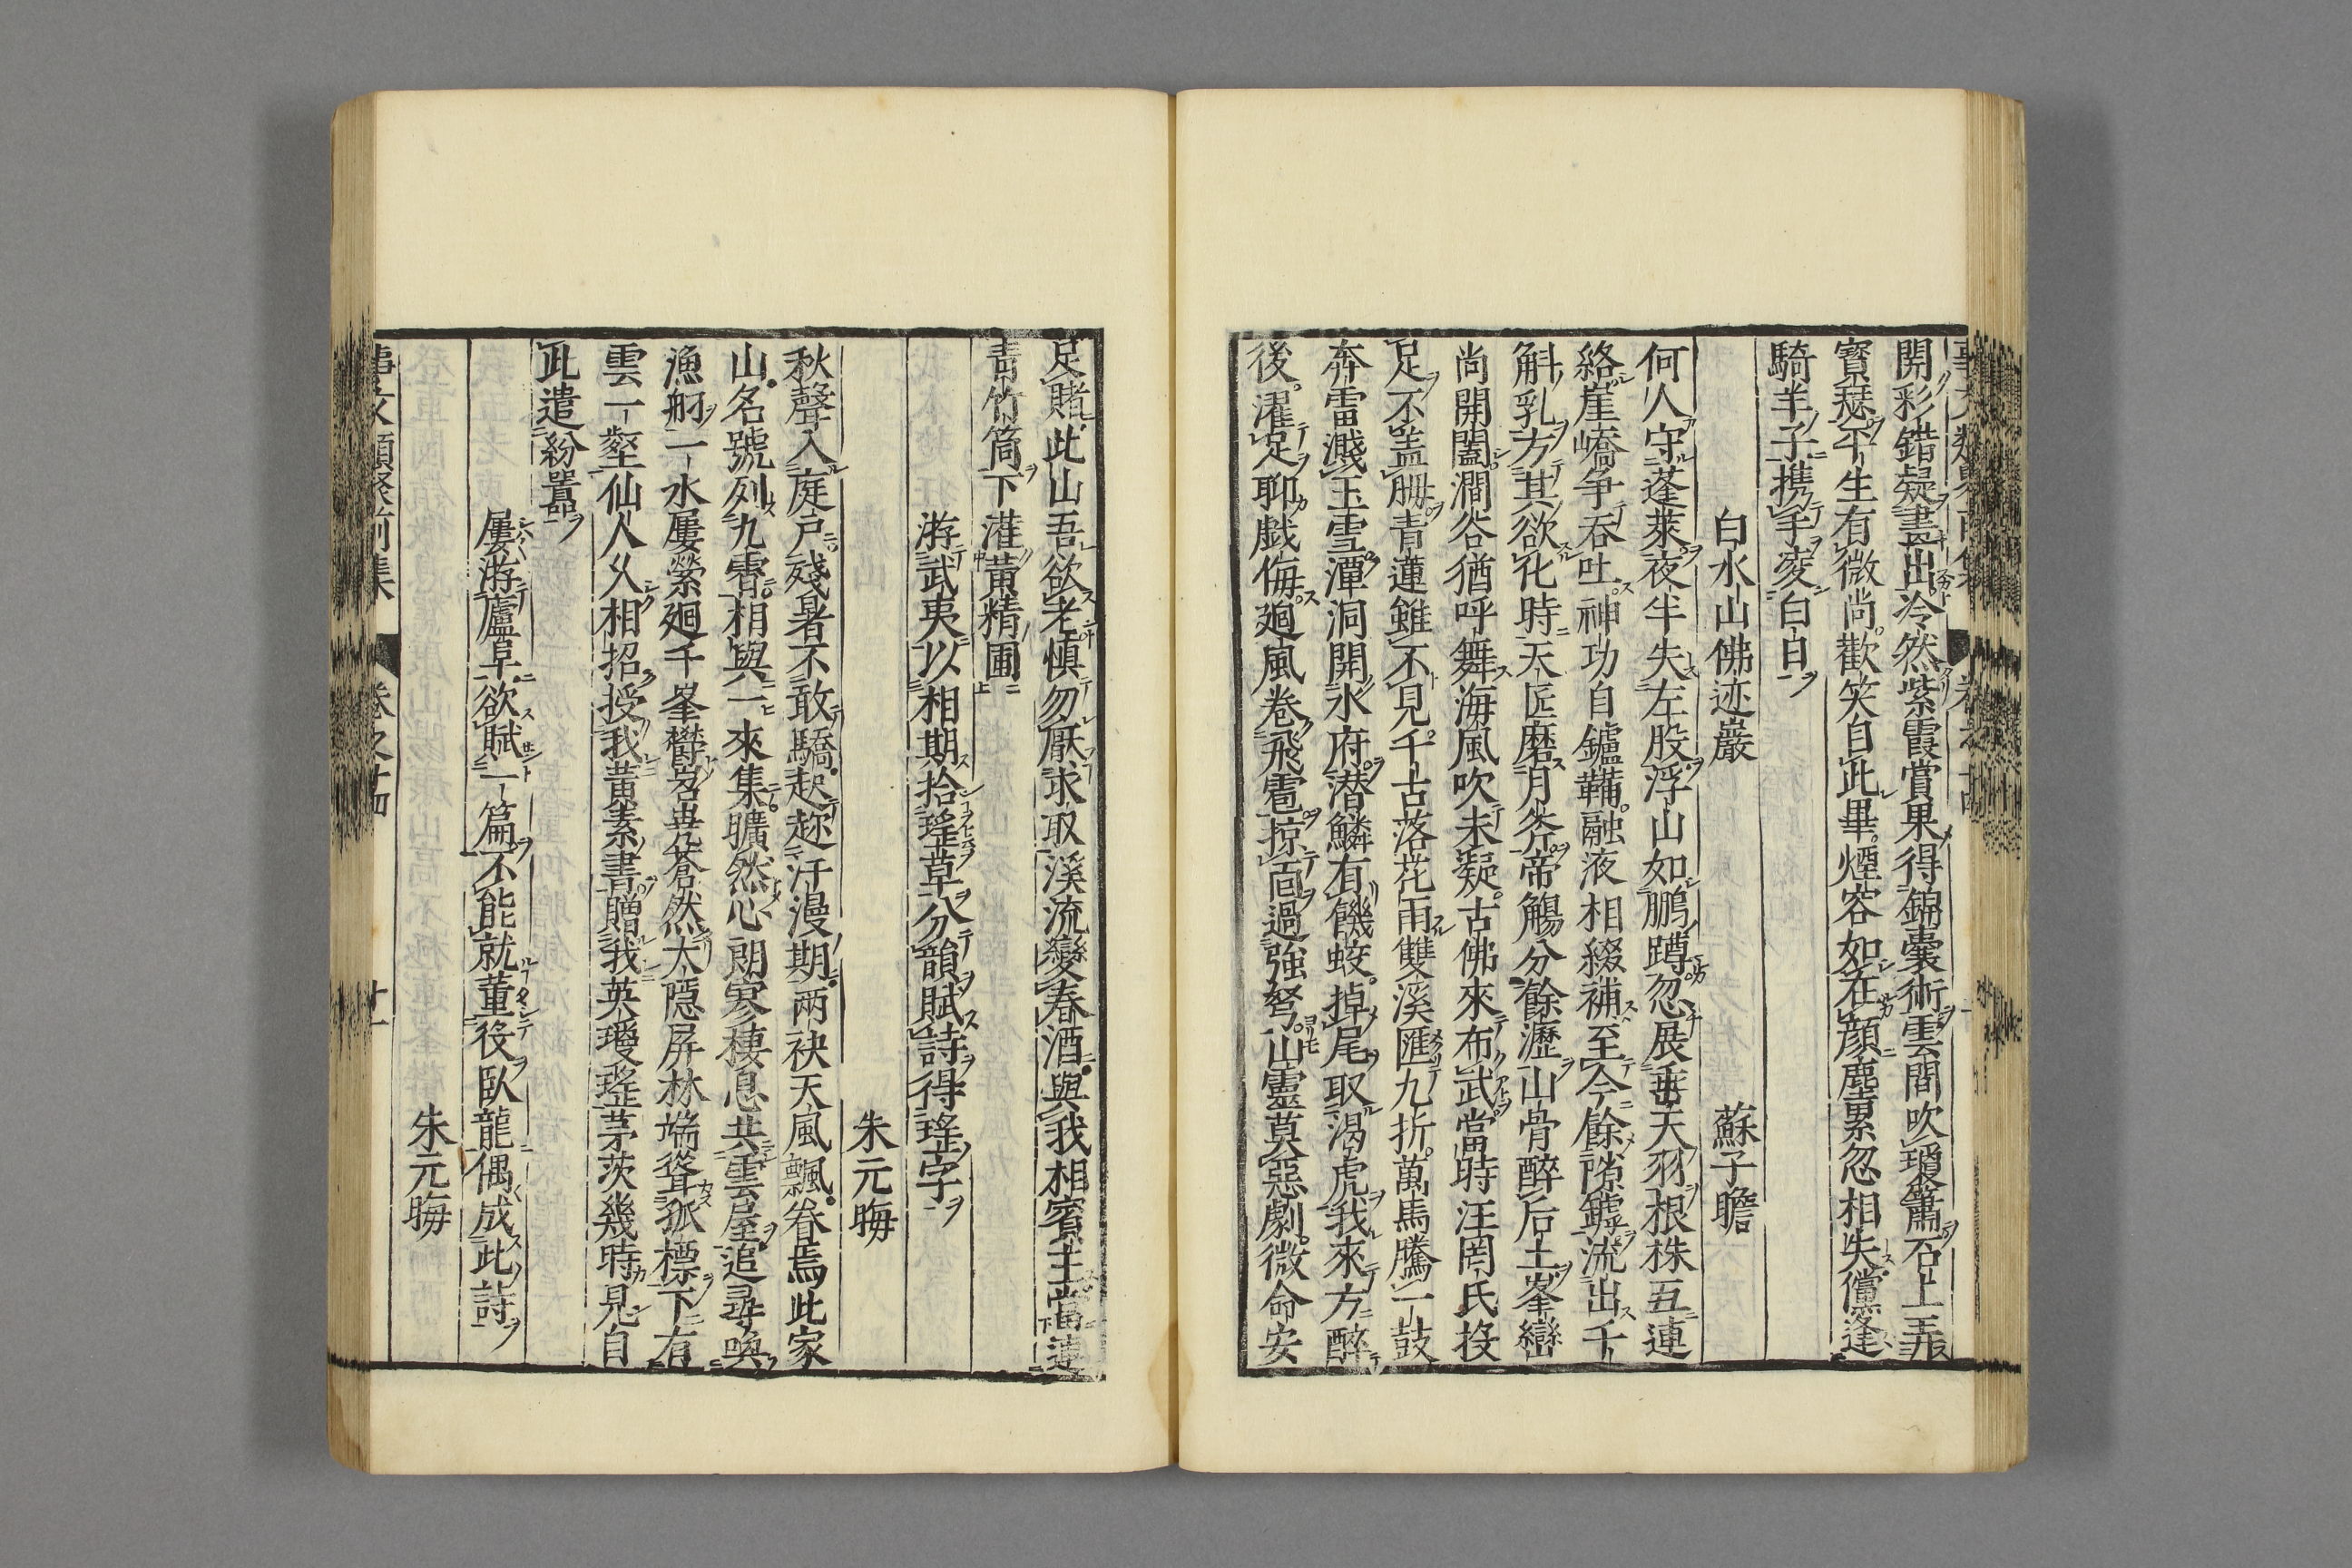 開彩錯疑畫出冷然紫霞賞果得錦囊術雲間吹瓊簫石上弄
寳瑟平生有微尚歡笑自此畢煙容如在顔塵累忽相失儻逢
騎羊子携手凌白日
白水山佛迹巖
蘇子瞻
何人守蓬萊夜半失左股浮山如鵬蹲忽展垂天羽根株互連
絡崖嶠争吞吐神功自鑪鞴融液相綴補至今餘隙罅流出千
斛乳方其欲化時天匠磨月斧帝觴分餘瀝山骨醉后土峯巒
尚開闔澗谷猶呼舞海風吹未凝古佛來布武當時汪罔氏投
足不盖拇青蓮雖不見千古落花雨雙溪匯九折萬馬騰一鼓
奔雷濺玉雪潭洞開水府潛鱗有饑蛟掉尾取渴虎我來方醉
後濯足聊戯侮廻風卷飛雹掠面過強弩山靈莫惡劇微命安
足賭此山吾欲老慎勿厭求取溪流變春酒與我相賓主當連
青竹筒下灌黄精圃
游武夷以相期拾瑶草分韻賦詩得瑶字
朱元晦
秋聲入庭戸殘暑不敢驕起趂汗漫期兩袂天風飄眷焉此家
山名號列九霄相與一來集曠然心朗寥棲息共雲屋追尋喚
漁舠一水屢縈廻千峯鬱岧嶤蒼然大隱屏林端聳孤標下有
雲一壑仙人久相招授我黄素書贈我英瓊瑶茅茨幾時見自
此遣紛囂
屢游廬阜欲賦一篇不能就董役臥龍偶成此詩
朱元晦
事文類聚前集
卷之十四
十一